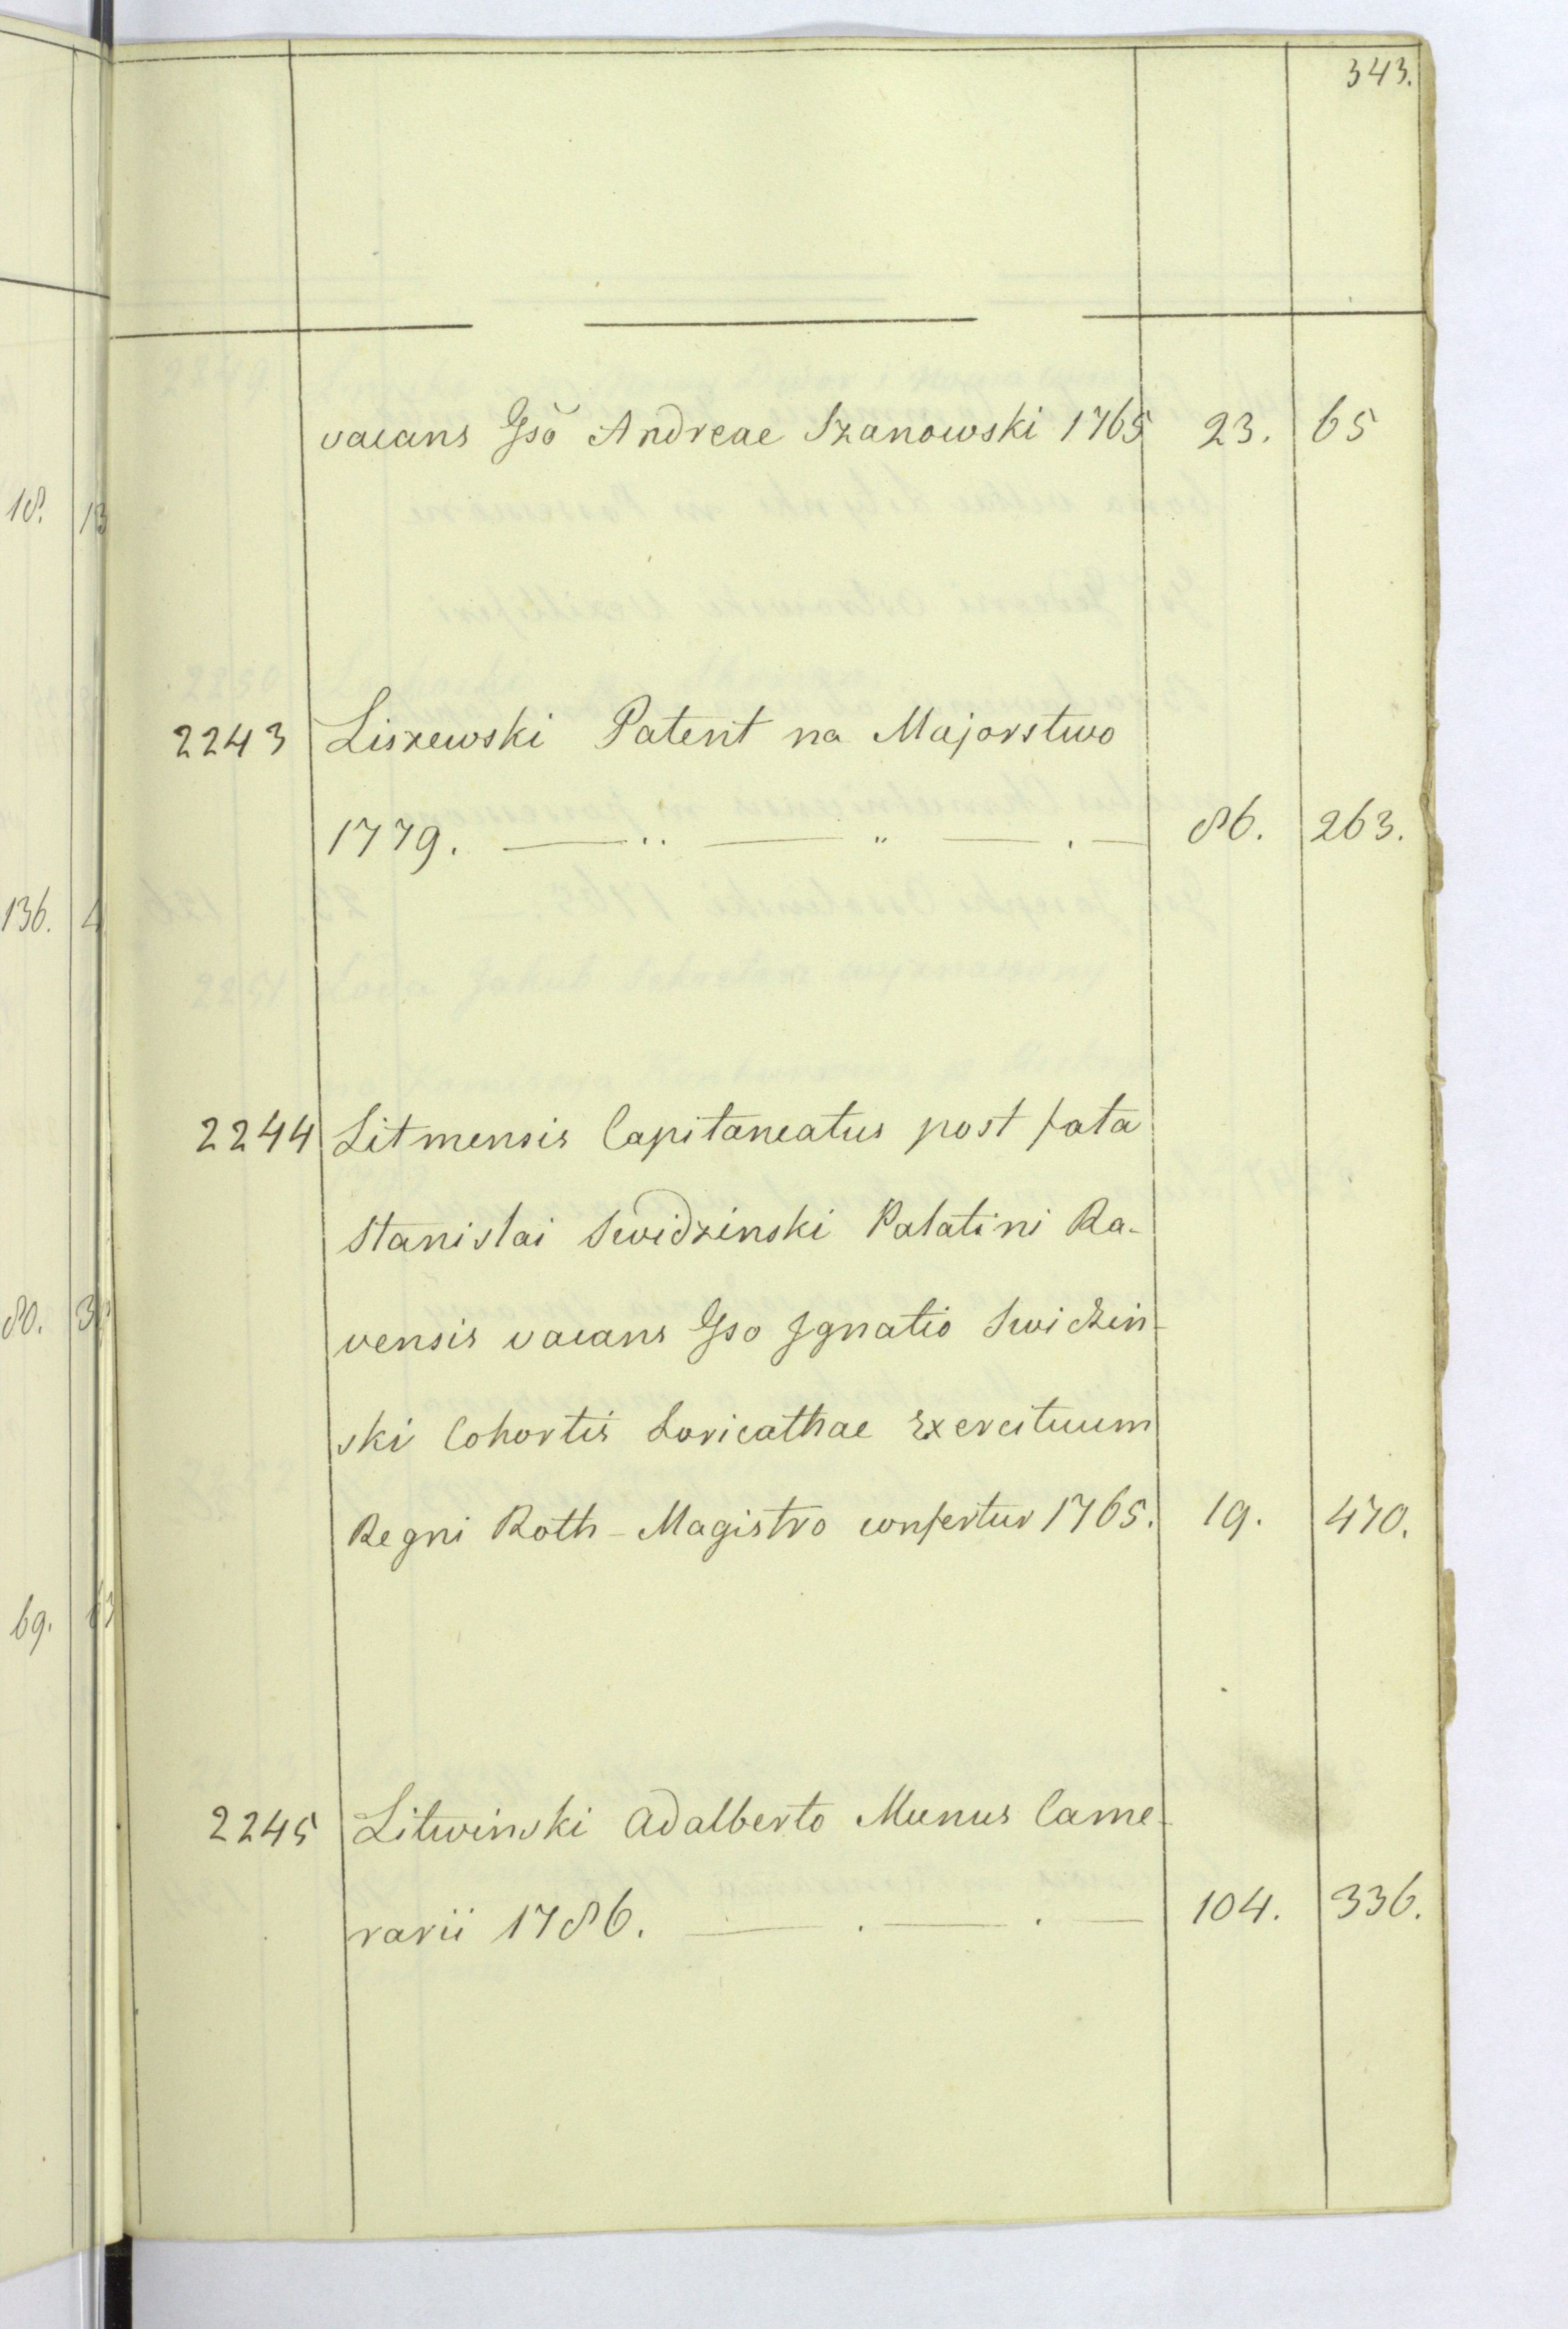 343.
vacans Gsō Andreae Szanowski 1765 23. 65
2243 Liszewski Patent na Majorstwo
1779. 86. 263.
2244 Litmensis Capitaneatus post fata
Stanislai Swidzinski Palatini Ra-
vensis vacans Gso Ignatio Swidzin-
ski Cohortis Loricathae Exercituum
Regni Roth-Magistro confertur 1765. 19. 470.
2245 Litwinski Adalberto Munus Came-
rarii 1786. 104. 336.
18. 13
136. 4
80. 3
69. 63